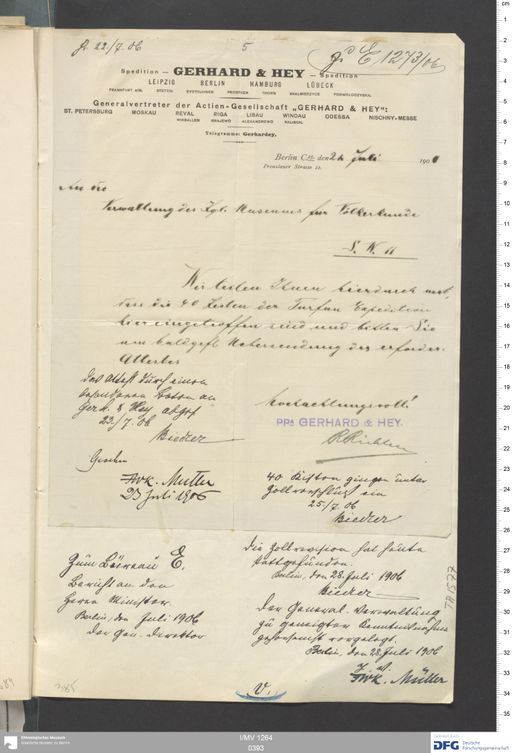 pr 22/7. 06
5
pr E 1273/06
Spedition — GERHARD & HEY — Spedition
LEIPZIG BERLIN HAMBURG LÜBECK
FRANKFURT a/M. STETTIN EYDTKUHNEN PROSTKEN THORN SKALMIERZYCE PODWOLOCZYSKA.
Generalvertreter der Actien-Gesellschaft „GERHARD & HEY":
ST. PETERSBURG MOSKAU REVAL RIGA LIBAU WINDAU ODESSA NISCHNY-MESSE
WIRBALLEN GRAJEWO ALEXANDROWO KALISCH.
Telegramme: Gerhardey.
Berlin C. den 21 Juli 190
Prenzlauer Strasse
An die
Verwaltung des Kgl. Museums für Völkerkunde
S. W. 11
Wir teilen Ihnen hierdurch mit,
dass die 40 Kisten der Turfan Expedition
hier eingetroffen sind und bitten Sie
um baldgefl. Uebersendung des erforder.
Attestes
Hochachtungsvoll!
PPA GERHARD & HEY
R Richter
Das Attest durch einen
besonderen Boten an
Gerh. & Hey abges
23./7. 06
Gesehen
FWK. Müller
23 Juli 1906
40 Kisten gingen unter
Zollverschluss ein
25./7. 06
Zum Büreau E.
Bericht an den
Herrn Minister.
Berlin, den Juli 1906
Der Gen. Direktor
Die Zollrevision hat heute
stattgefunden.
Berlin, den 28. Juli 1906
Der General-Verwaltung
zu geneigter Kenntnisnahme
gehorsamst vorgelegt.
Berlin, den 28. Juli 1906
FWK. Müller
V.
TA 1577
Ethnologisches Museum
Staatliche Museen zu Berlin
I/MV 1264
0393
DFG Deutsche
Forschungsgemeinschaft